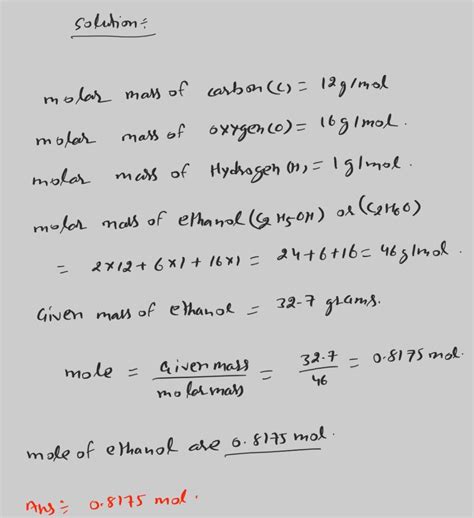 Solution:
molar mass of carbon (C) = 12g/mol
molar mass of oxygen (O) = 16g/mol.
molar mass of Hydrogen (H) = 1g/mol.
molar mass of ethanol (C2H5OH) or (C2H6O)
= 2×12 + 6×1 + 16×1 = 24+6+16 = 46g/mol.
Given mass of ethanol = 32.7 grams.
mole = Given mass / molar mass = 32.7 / 46 = 0.8175 mol.
mole of ethanol are 0.8175 mol.
Ans: 0.8175 mol.